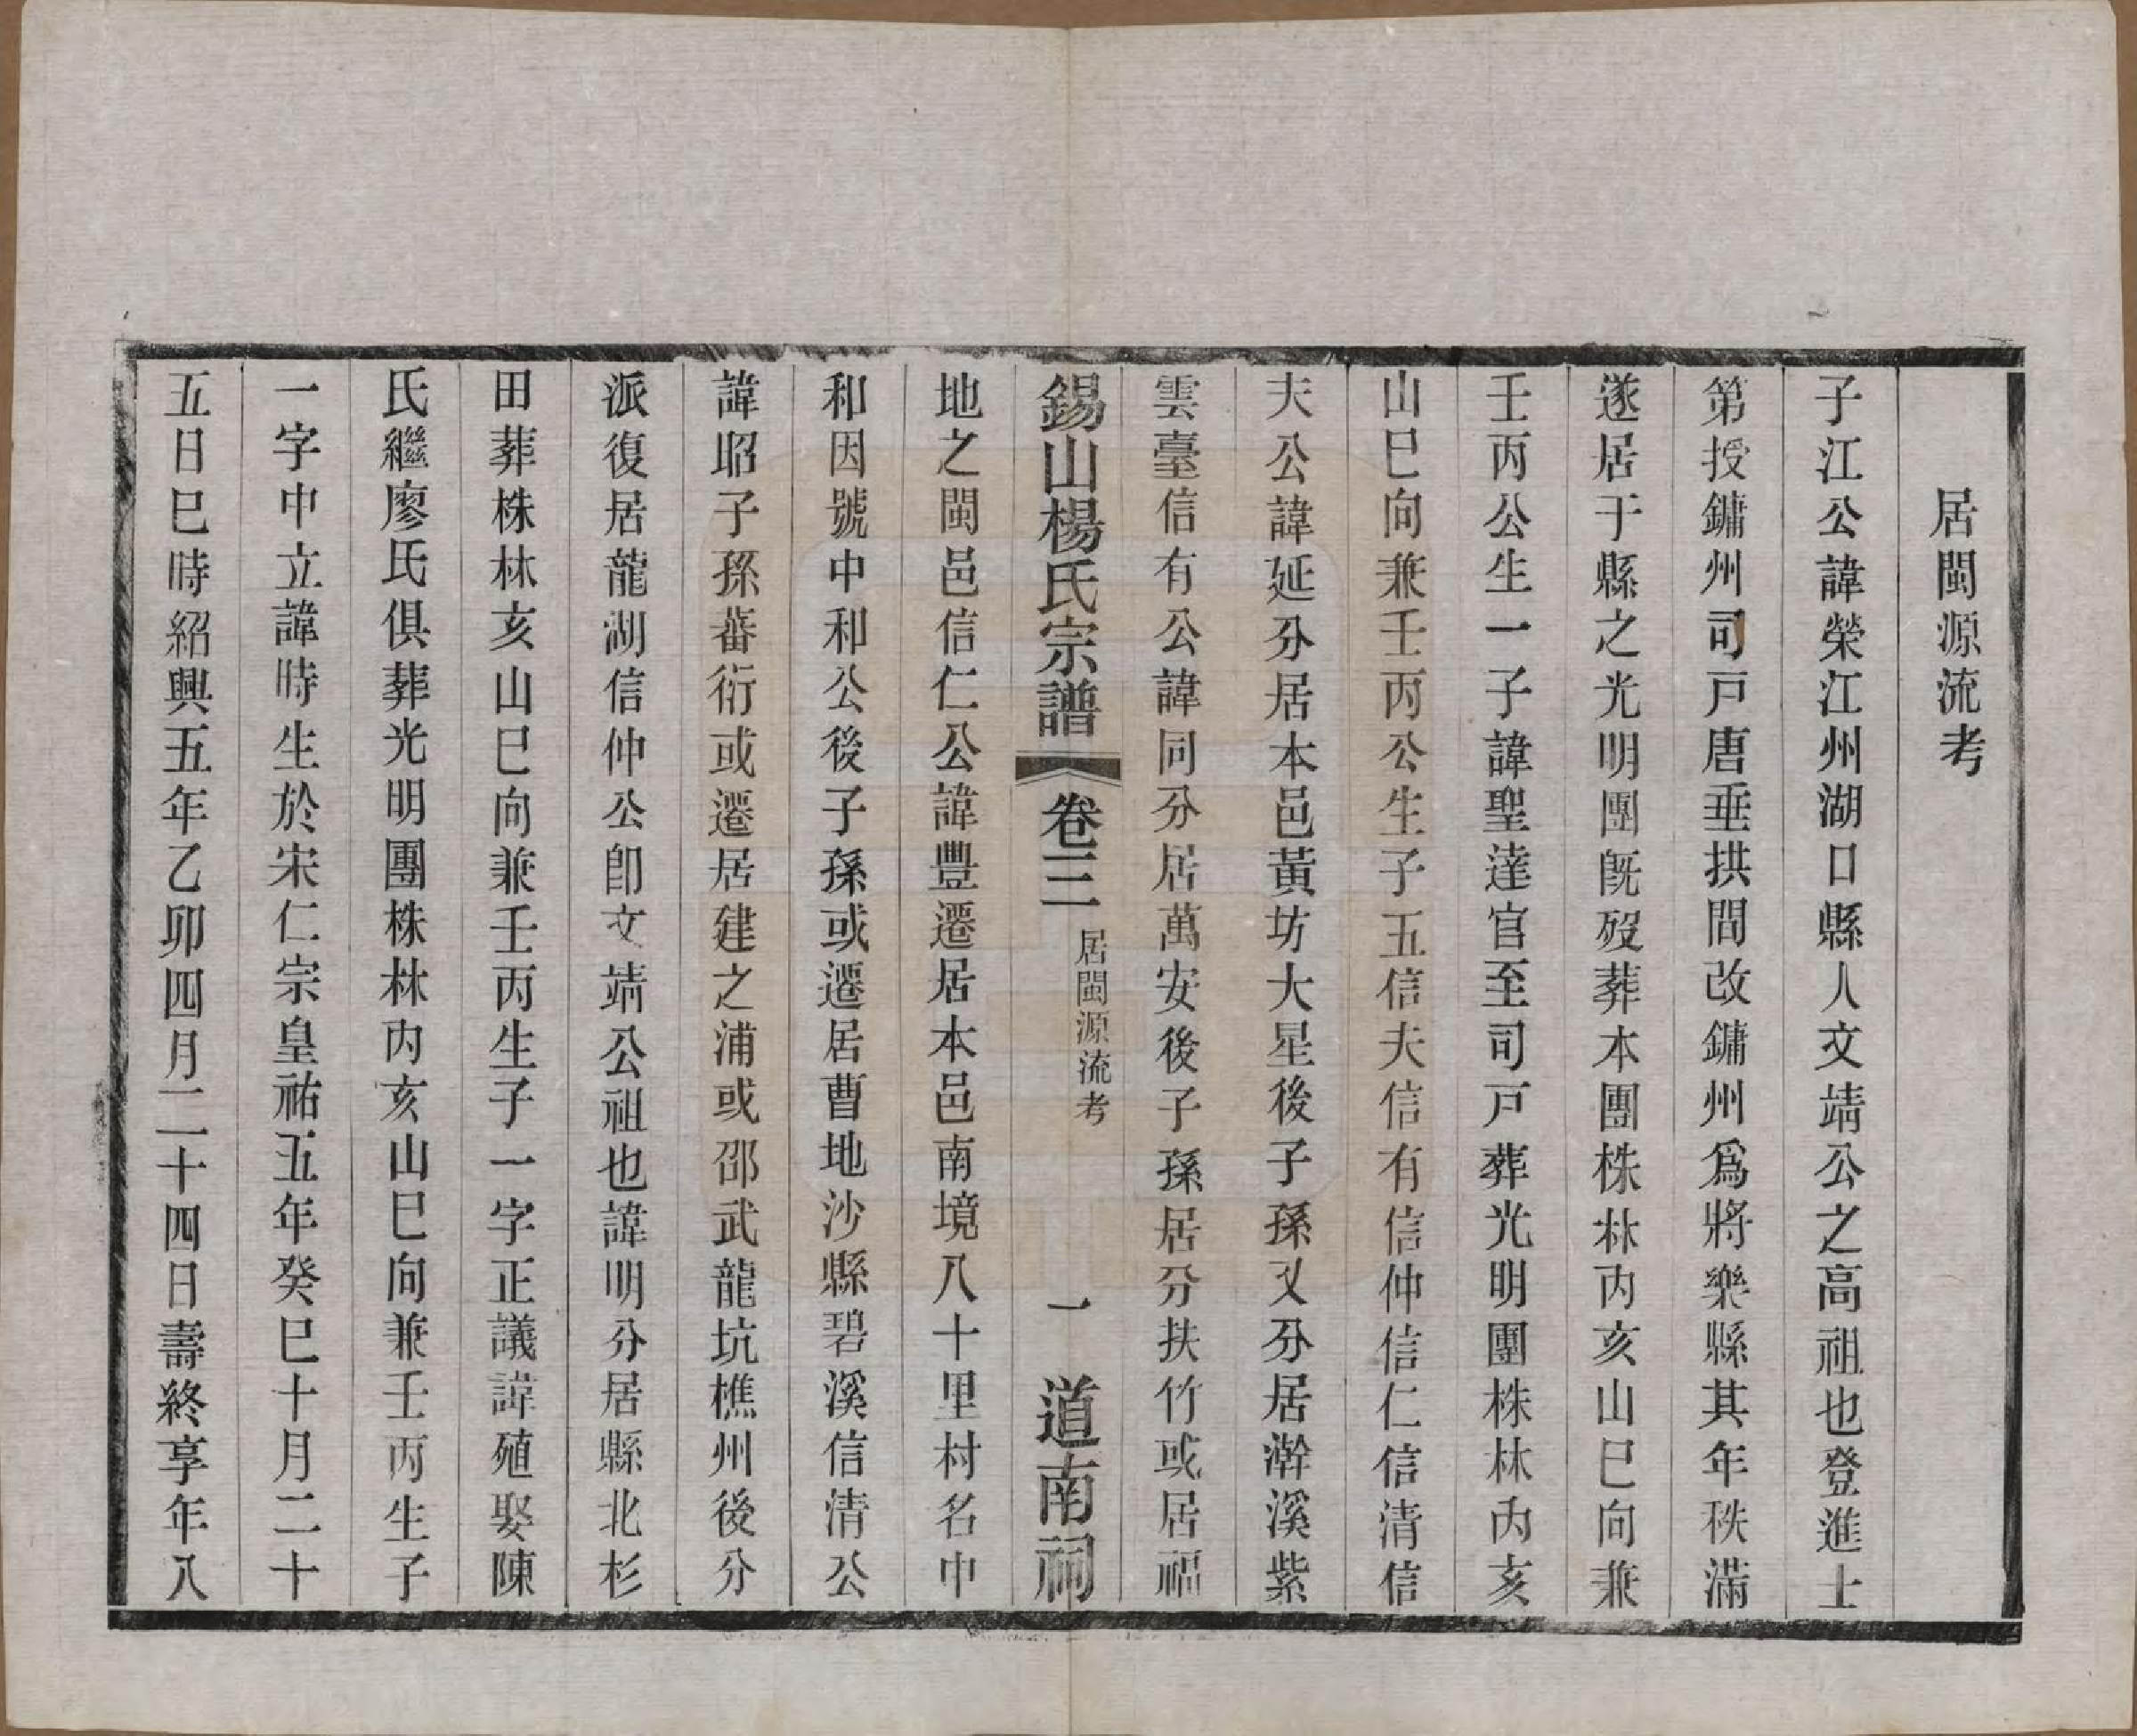 居閩源流考
子江公諱榮江州湖口縣人文靖公之高祖也登進士
第授鏞州司戸唐垂拱間改鏞州爲將樂縣其年秩滿
遂居于縣之光明團旣歿葬本團株林內亥山巳向兼
壬丙公生一子諱聖達官至司戸葬光明團株林內亥
山巳向兼壬丙公生子五信夫信有信仲信仁信清信
夫公諱延分居本邑黃坊大星後子孫又分居澣溪紫
雲臺信有公諱同分居萬安後子孫居分扶竹或居福
錫山楊氏宗譜 卷三 居閩源流考 一 道南祠
地之閩邑信仁公諱豐遷居本邑南境八十里村名中
和因號中和公後子孫或遷居曹地沙縣碧溪信清公
諱昭子孫蕃衍或遷居建之浦或邵武龍坑樵州後分
派復居龍湖信仲公卽文靖公祖也諱明分居縣北杉
田葬株林亥山巳向兼壬丙生子一字正議諱殖娶陳
氏繼廖氏俱葬光明團株林內亥山巳向兼壬丙生子
一字中立諱時生於宋仁宗皇祐五年癸巳十月二十
五日巳時紹興五年乙卯四月二十四日壽終享年八